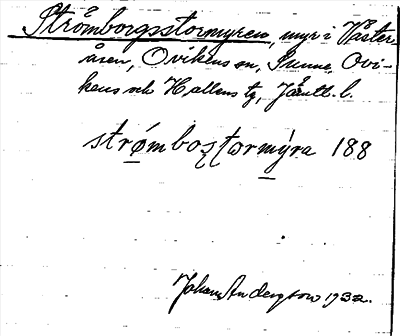 Strömborgsstormyren, myr i Väster-
åsen, Ovikens sn, Sunne, Ovi-
kens och Hallens tg, Jämtl. l.
strømbosʈormýra 188
Johan Anderzon 1932.